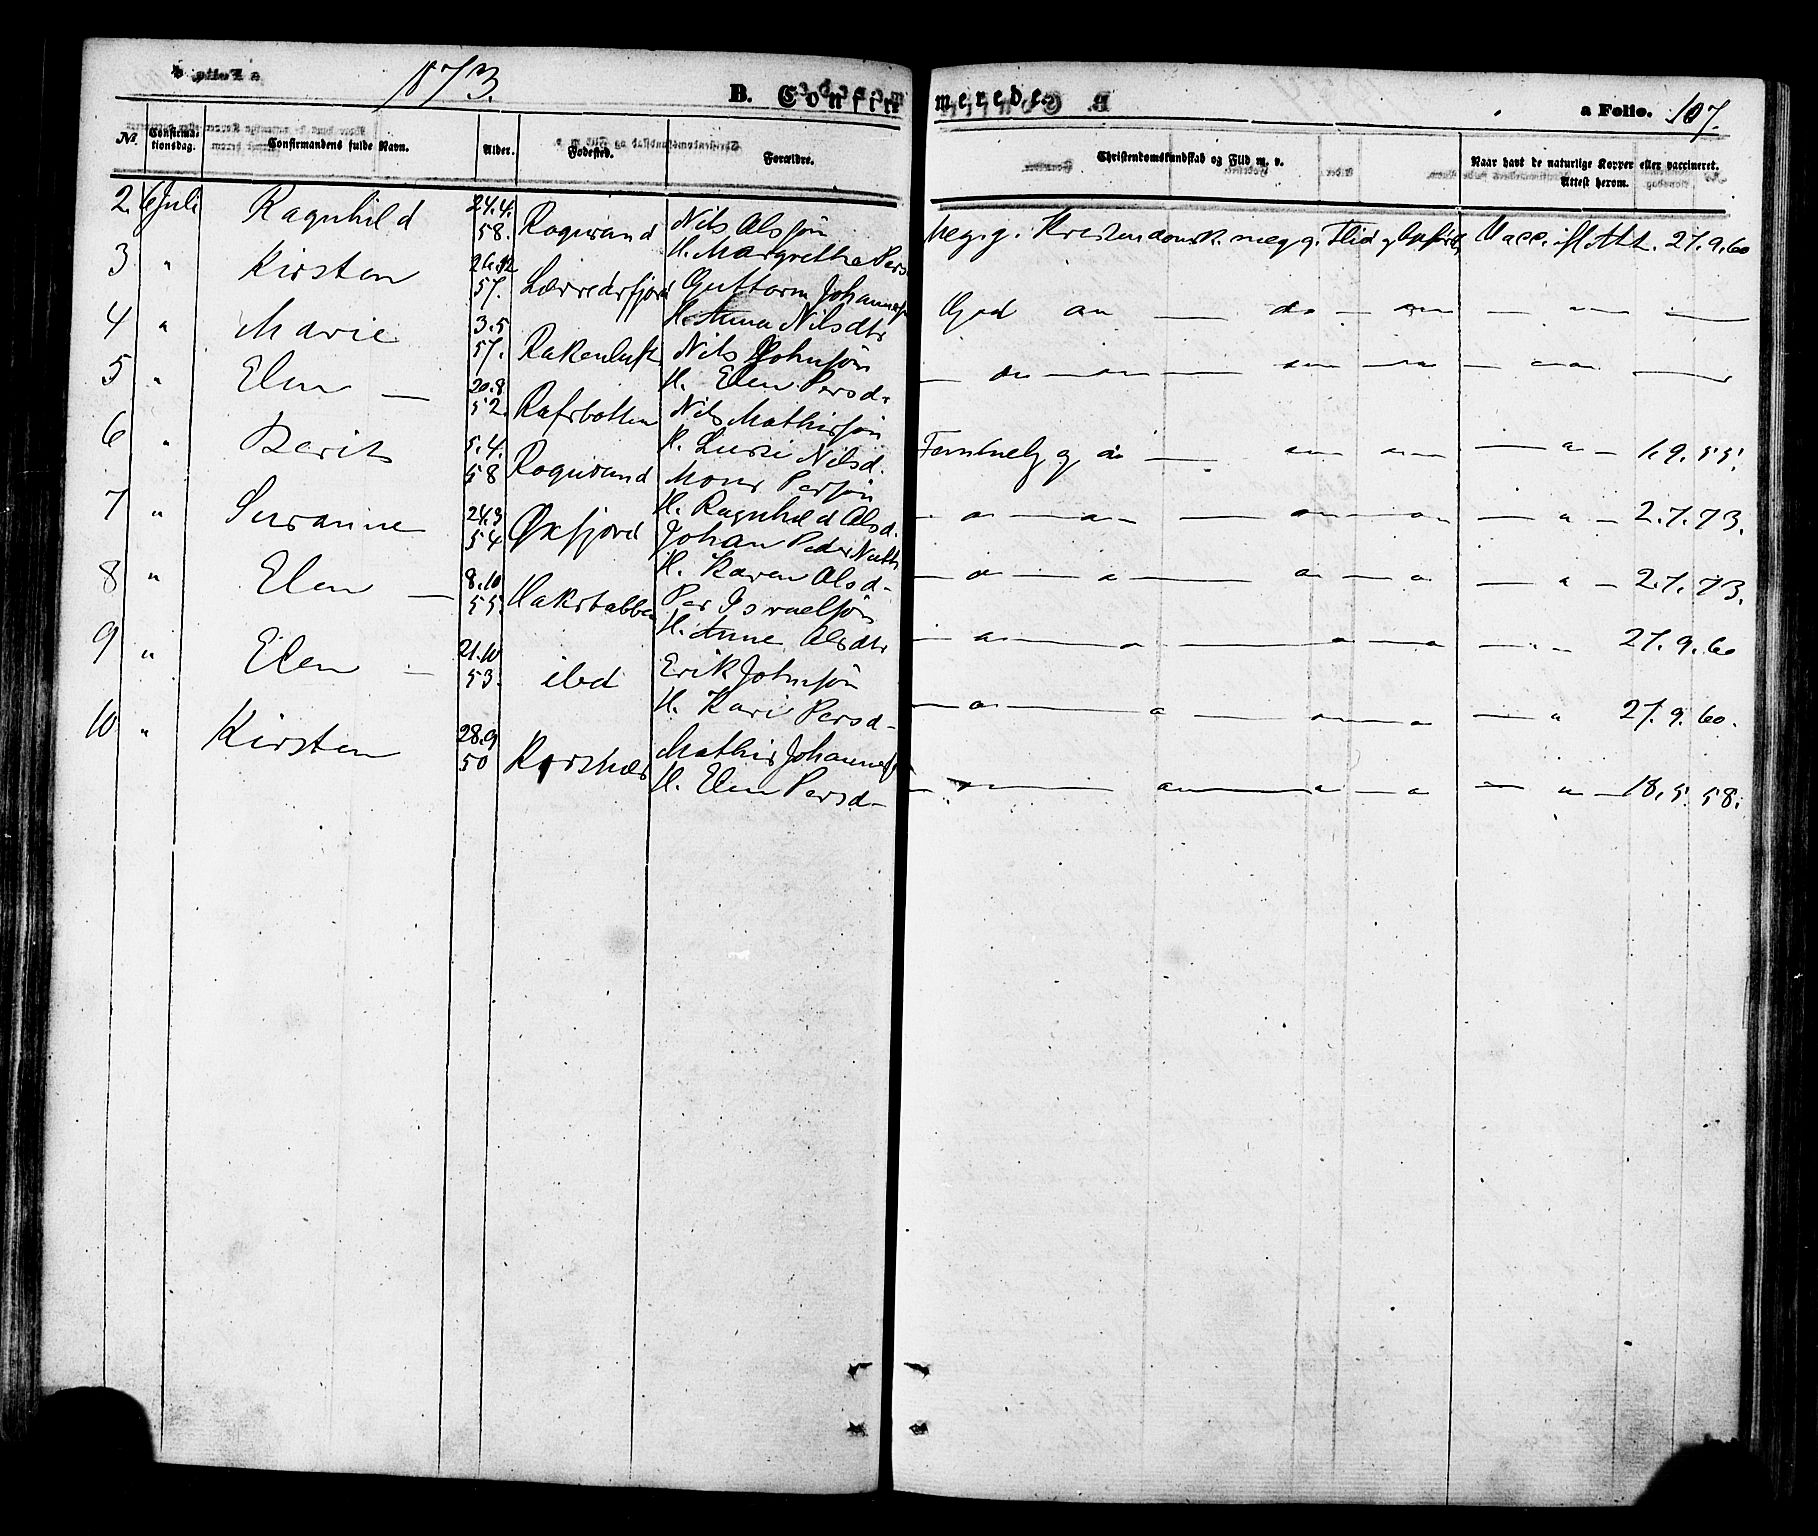 1873.
B. Confirmerede.
a Folio. 107.
No. Confirmationsdag. Confirmandens fulde Navn. Alder. Fødested. Forældre. Christendomskundskab og Flid m. v. Naar havt de naturlige Kopper eller vaccineret. Attest herom.
2. 6 Juli Ragnhild 24.4. 58. Nils Alssøn
Rognsund H. Margrethe Pers. Meg. g. Kristendomsk. meg g. Flid Vacc. ifl. Att. 27.9.60
3 " Kirsten 26.12 57. Lærredsfjord Guttorm Johannes
H. Anna Nilsdtr God — do —
4 " Marie 3.5 57. Nils Johnsøn
H. Elen Persd.
5 " Elen — 20.8 52. Rafsbotten Nils Mathissøn
H. Nilsd. 1.9.55.
6 " Berit 5.4. 58 Rognsund Mons Persøn
H. Ragnhild Alsd. 2.7.73.
7 " Susanne 24.3 54 Øxfjord Johan Peder
H. Karen Alsd. 2.7.73.
8 " Elen — 8.10 55. Hakstabben Per Israelsøn
H. Anne Alsdtr 27.9.60
9 " Elen — 21.10 53. ibd Erik Johnsøn
H. Kari Persd. 27.9.60.
10 " Kirsten 28.9 50 Korsnæs Mathis Johannes
H. Elen Persd. 18.5.58.